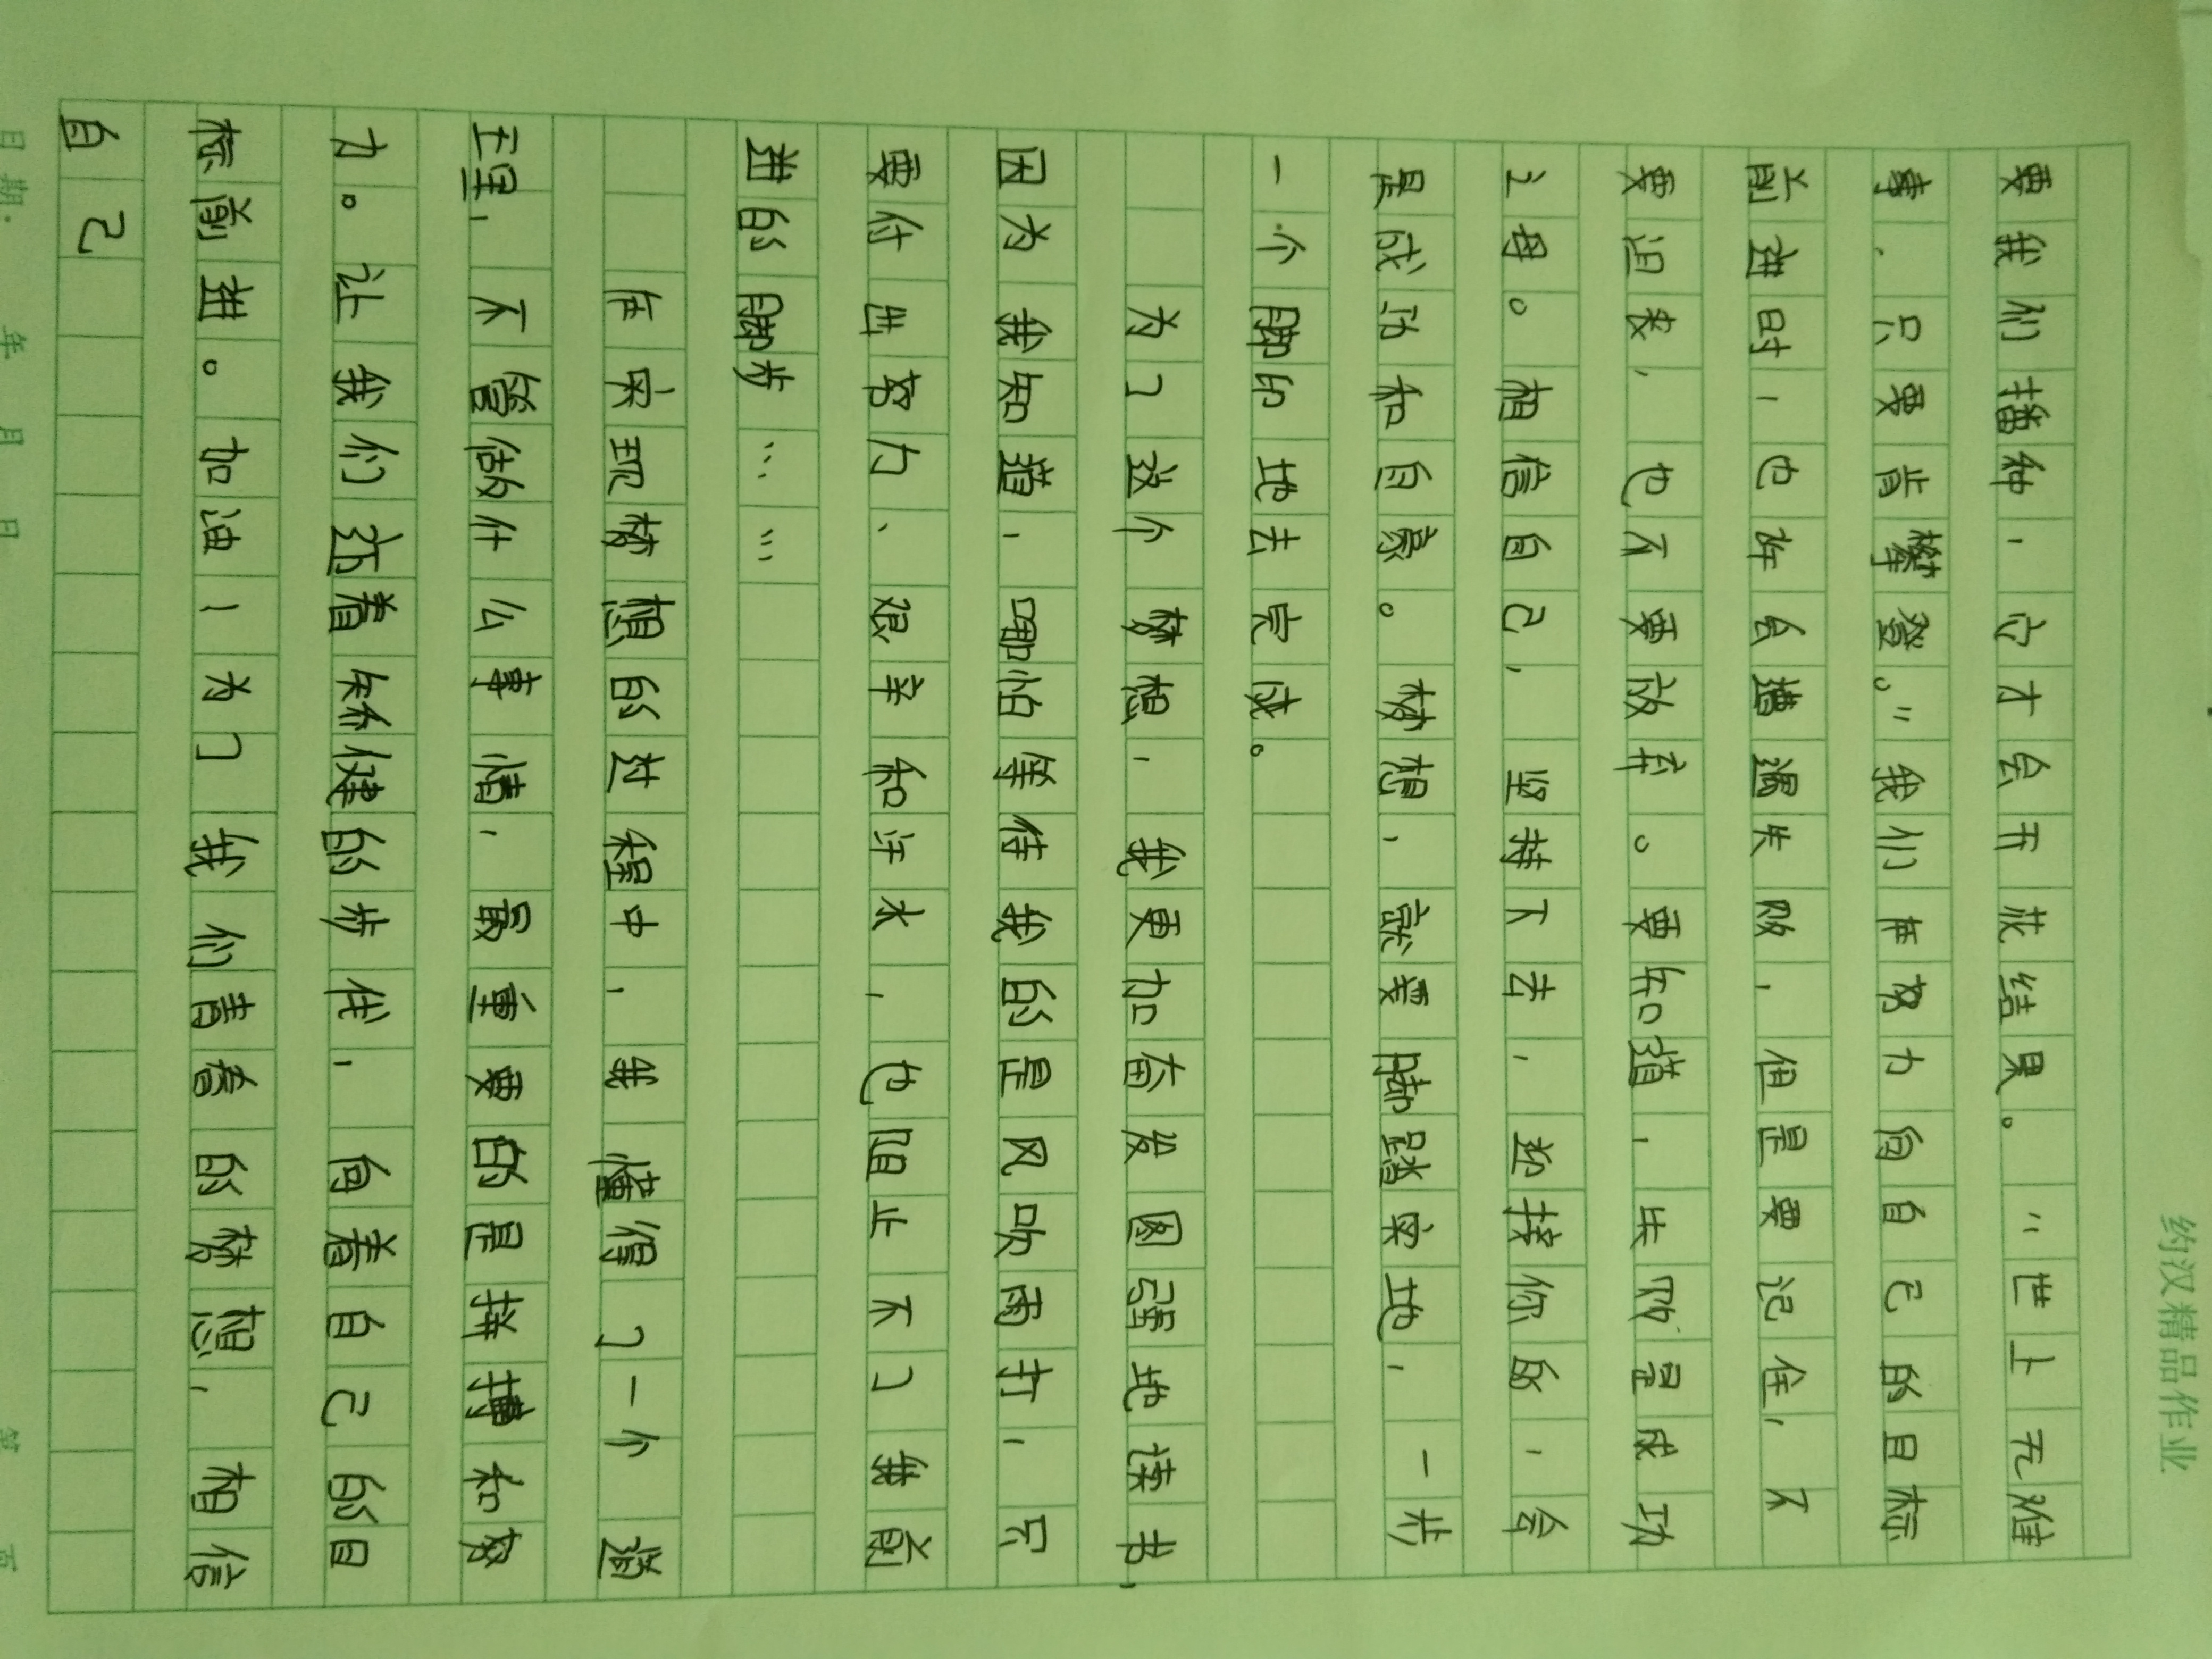 约汉精品作业
要我们播种，它才会开花结果。“世上无难
事，只要肯攀登。”我们在努力向自己的目标
前进时，也许会遭遇失败，但是要记住，不
要沮丧，也不要放弃。要知道，失败是成功
之母。相信自己，坚持下去，迎接你的，会
是成功和自豪。梦想，就要脚踏实地，一步
一个脚印地去完成。
为了这个梦想，我更加奋发图强地读书，
因为我知道，哪怕等待我的是风吹雨打，只
要付出努力、艰辛和汗水，也阻止不了我前
进的脚步……
在实现梦想的过程中，我懂得了一个道
理，不管做什么事情，最重要的是拼搏和努
力。让我们迈着矫健的步伐，向着自己的目
标前进。加油！为了我们青春的梦想，相信
自己
日期： 年 月 日 第 页